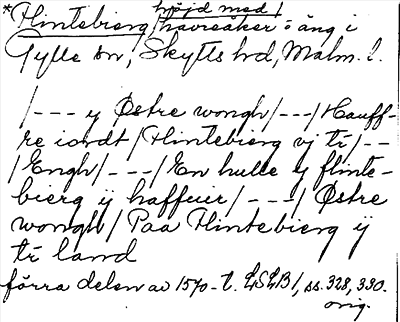 *Flintebierg, höjd med havreåker o äng i
Gylle sn, Skytts hd, Malm. l.
/--- y Østre wongh/---/Hauff-
re iordt/Flintebierg vj tr/--
/Engh/---/En hulle y flinte-
bierg ij haffuer/---/Østre
wongh/Paa Flintebierg ij
tr land
förra delen av 1570-t. LSLB1, ss. 328, 330.
orig.